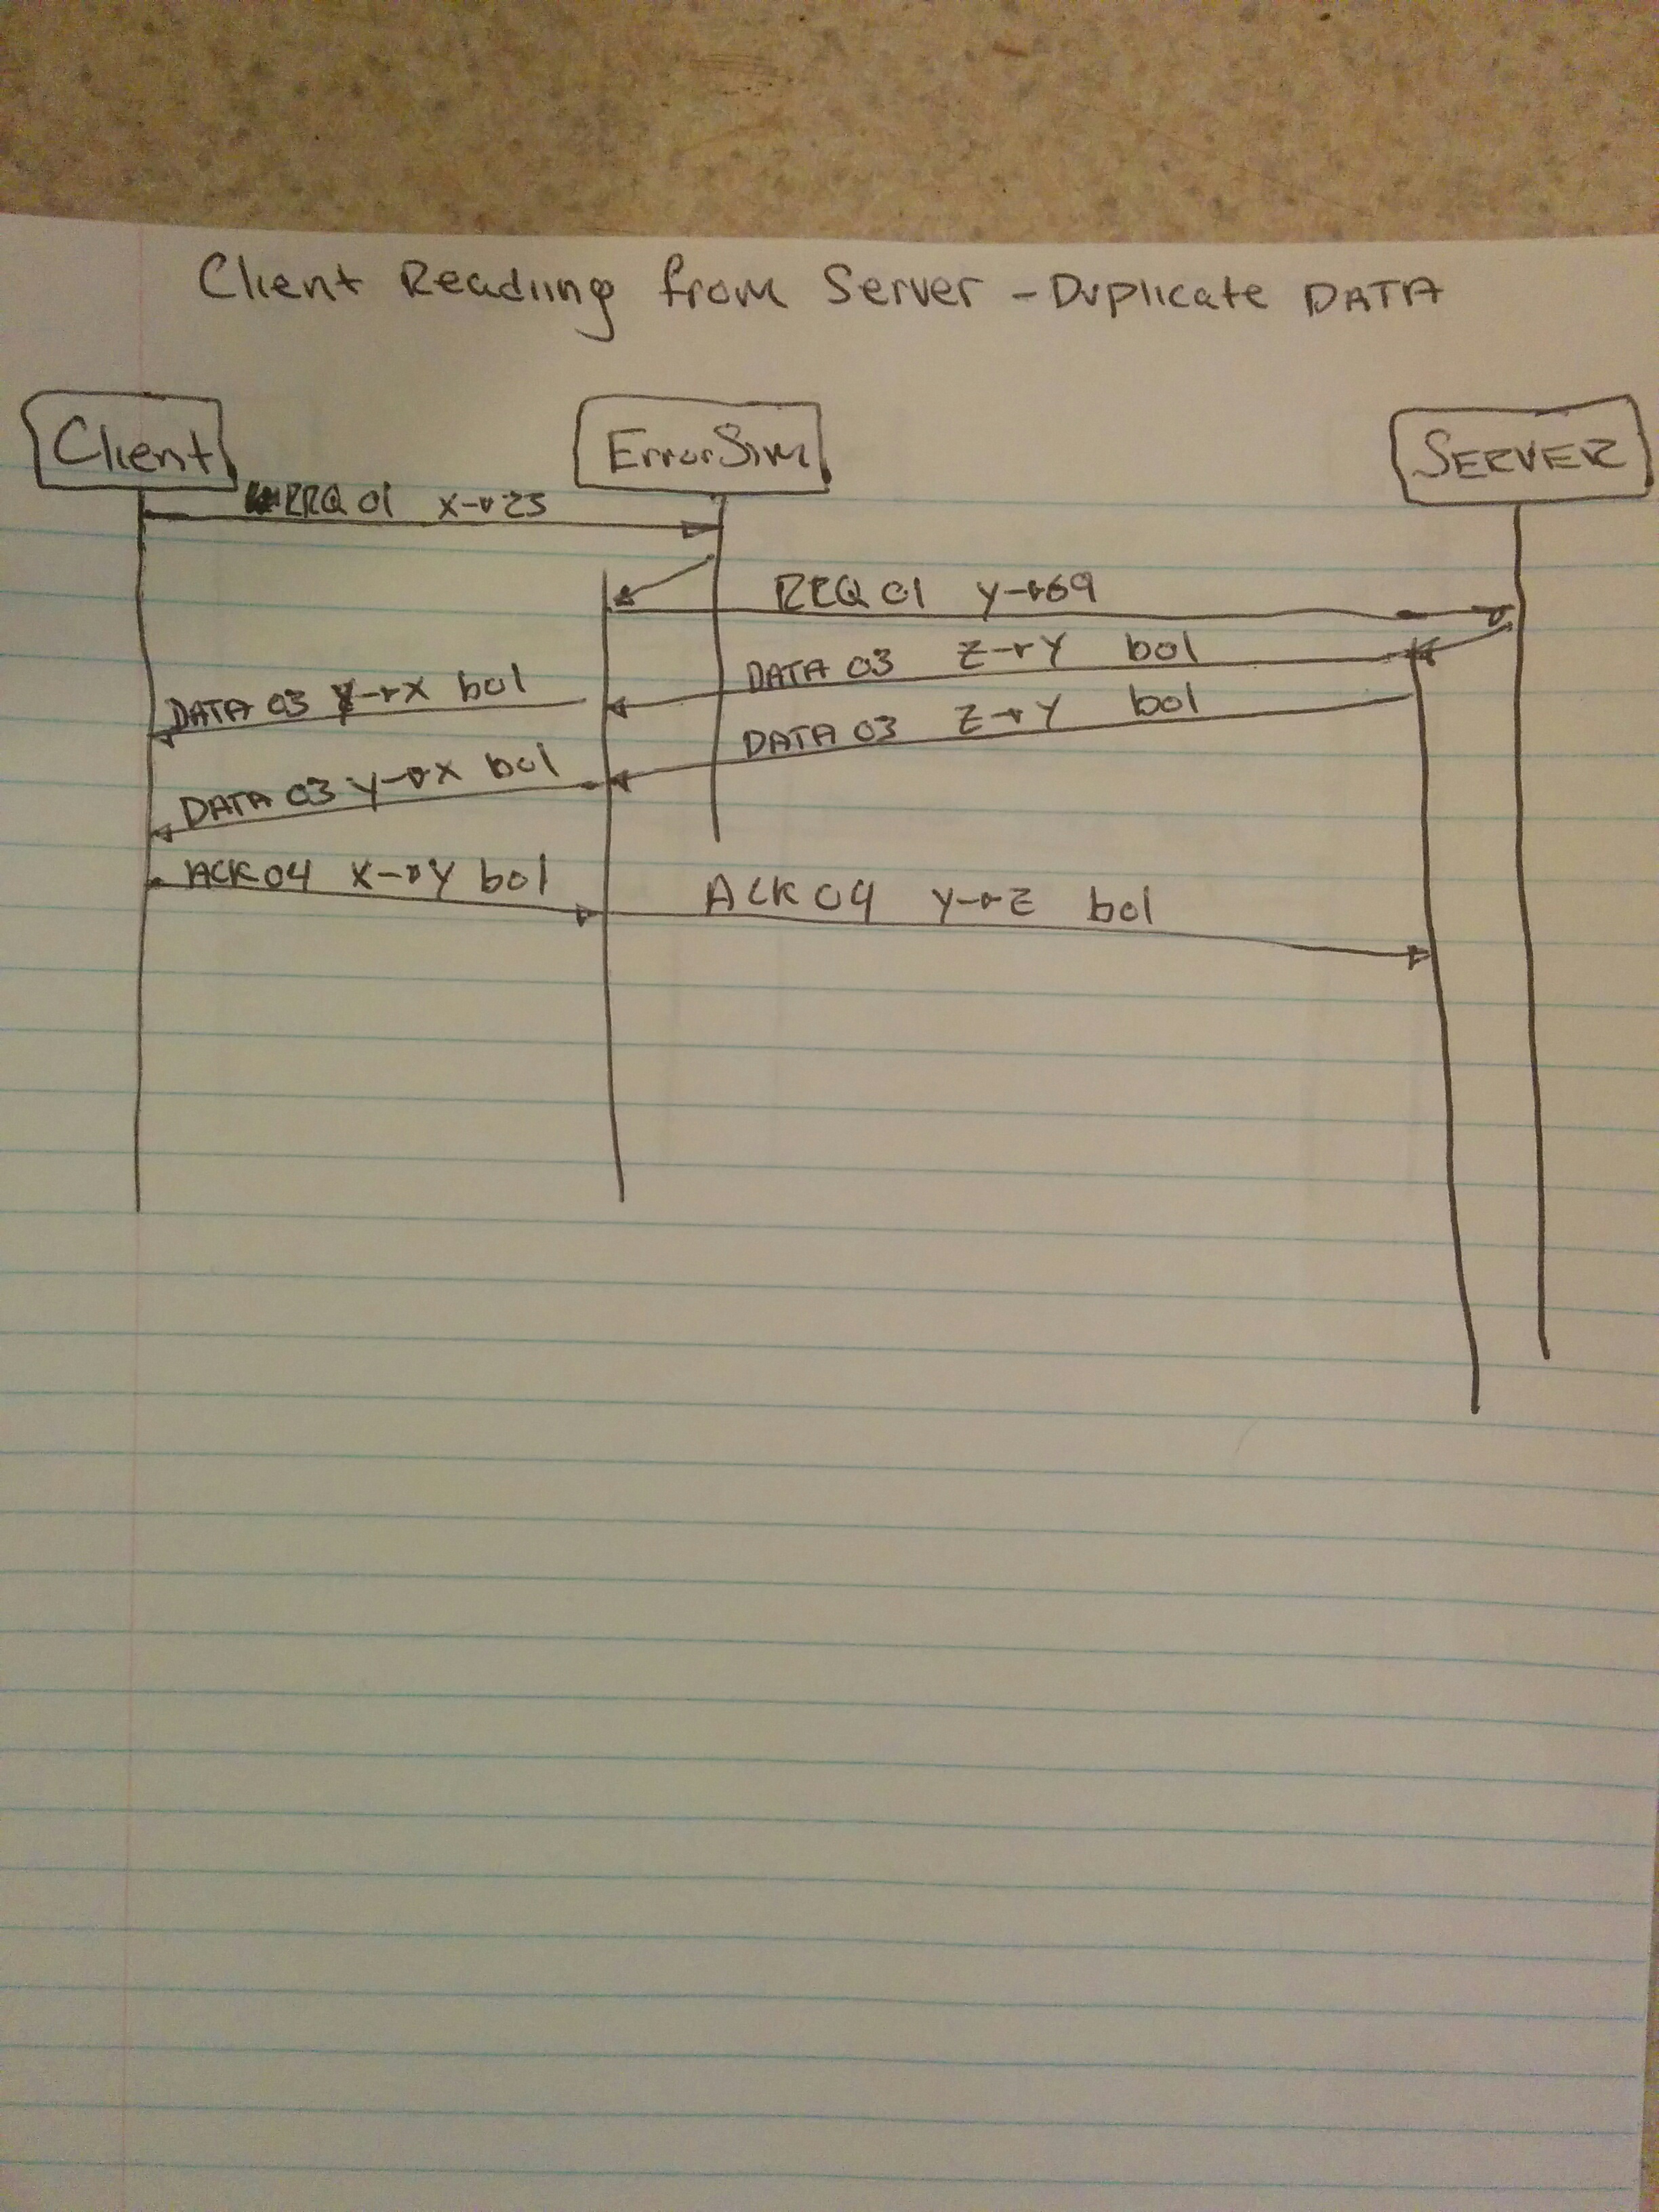 Client Readiing from Server - Duplicate DATA
Client
ErrorSim
SERVER
RRQ 01 X→23
RRQ 01 Y→69
DATA 03 Z→Y bol
DATA 03 Y→X bol
DATA 03 Z→Y bol
DATA 03 Y→X bol
ACK 04 X→Y bol
ACK 04 Y→Z bol